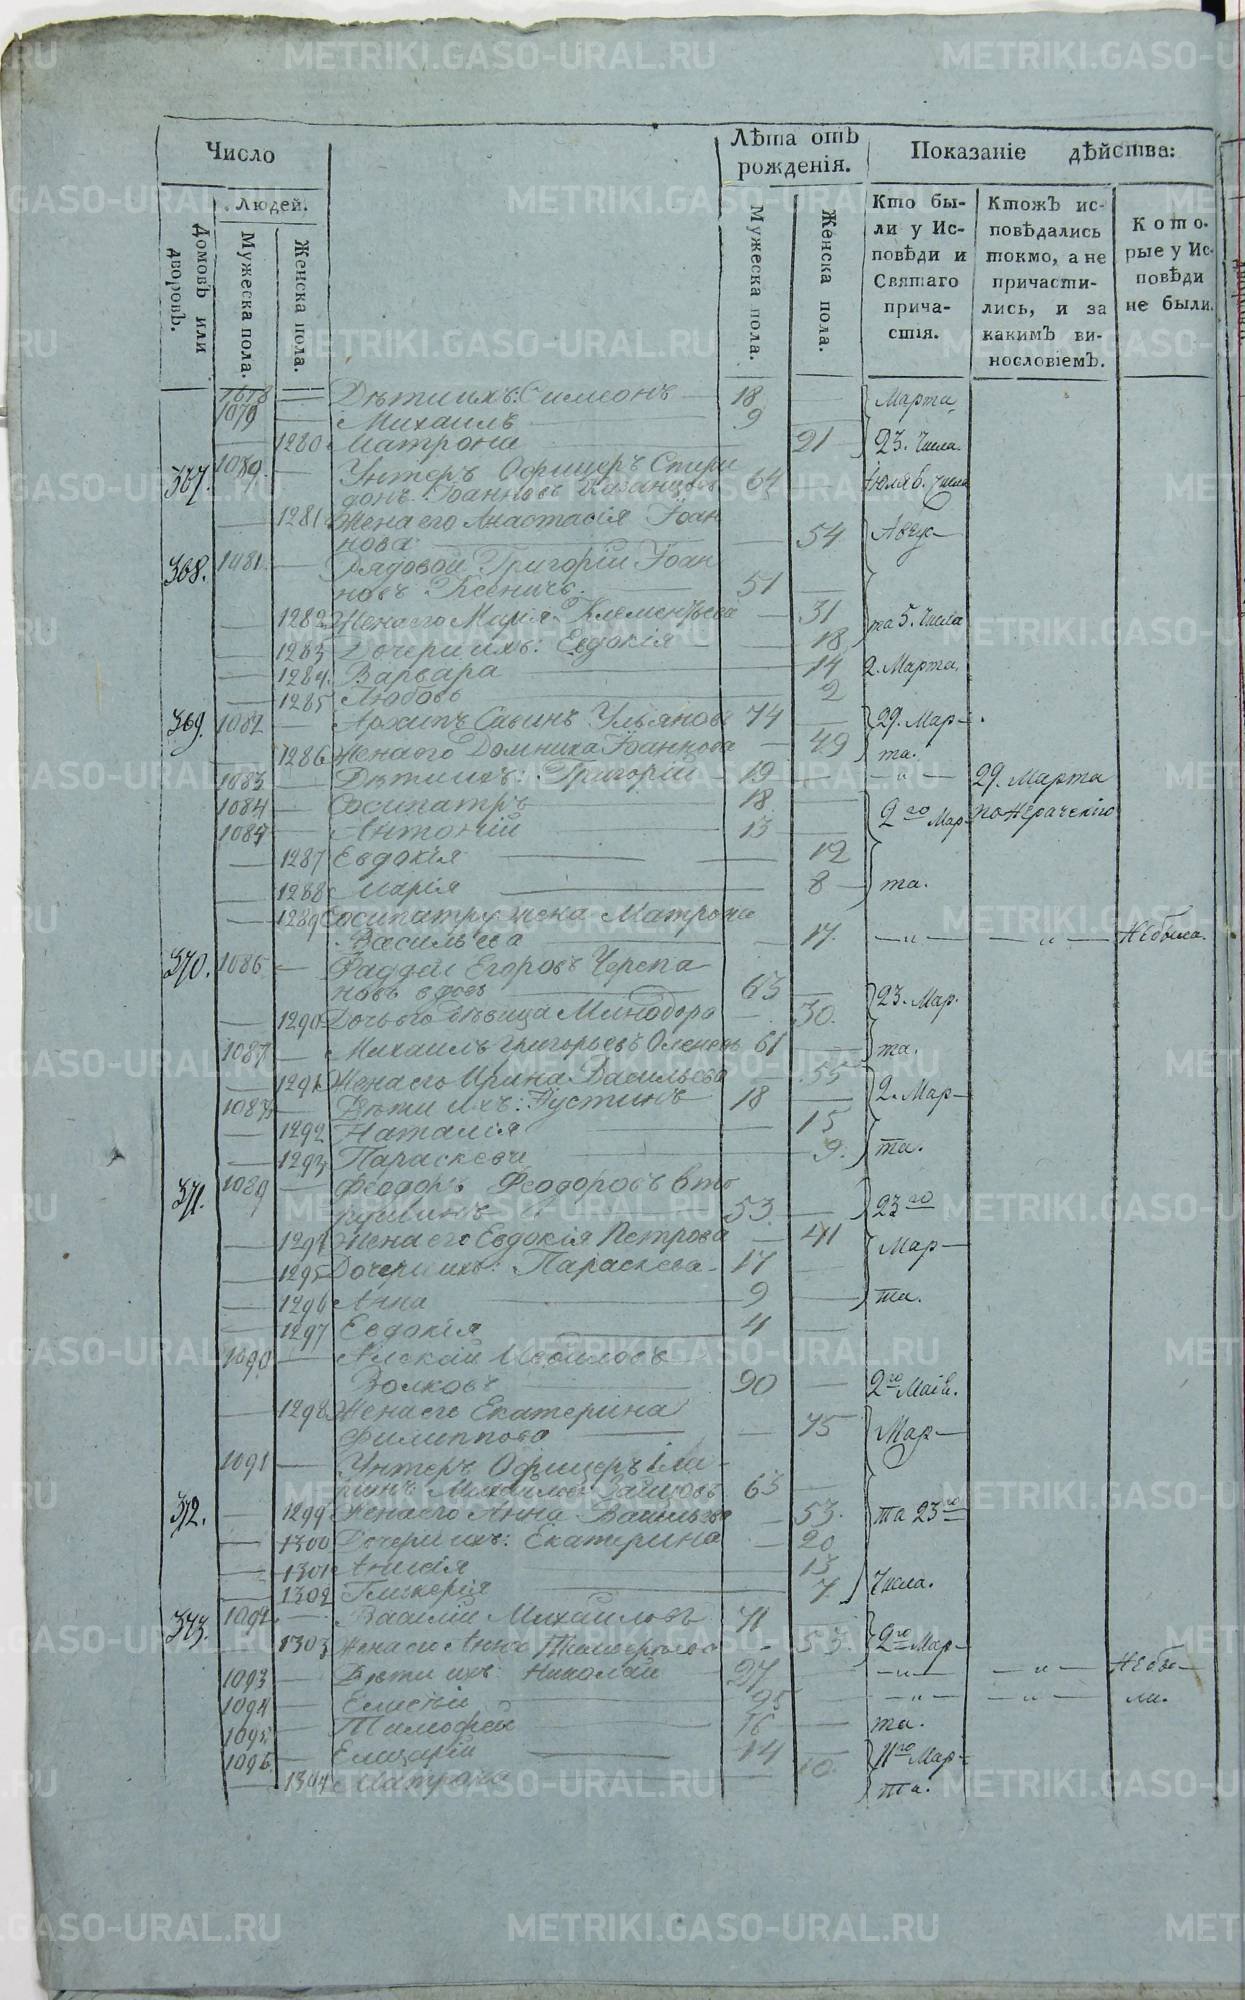 METRIKI.GASO-URAL.RU
Число
Лѣта отъ рожденія.
Показаніе дѣйства:
Людей.
Домовъ или дворовъ.
Мужеска пола.
Женска пола.
Мужеска пола.
Женска пола.
Кто бы-
ли у Ис-
повѣди и
Святаго
прича-
стія.
Ктожъ ис-
повѣдались
токмо, а не
причасти-
лись, и за
какимъ ви-
нословіемъ.
Кото-
рые у Ис-
повѣди
не были.
1078 Дѣти ихъ: Симеонъ 18 Марта
1079 Михаилъ 9
1280 Матрона 21 23. Числа.
367. Унтеръ Офицеръ Спири
донъ Іоанновъ Казанцовъ 64 Іюля 6. числа
1281 Жена его Анастасія Іоан
нова 54 Авгус
368. 1081 Рядовой Григорій Іоан
новъ 51
1282 Жена его Марія Клементьева 31 та 5. Числа
1283 Дочери ихъ: Евдокія 18
1284. Варвара 14 2. Марта.
1285 Любовь 2
369. 1082 Архипъ Савинъ Ульяновъ 74 29. Мар-
1286 Жена его Домника Іоаннова 49 та.
1083 Дѣти ихъ: Григорій 19 -"- 29. Марта
1084 Сосипатръ 18 2го Мар
Антоній 13
1287 Евдокія 12
1288 Марія 8 та.
1289 Сосипатру жена Матрона
Васильева 17. -"- -"- Не была.
370. 1086 Фаддей Егоровъ Черепа
новъ вдовъ 63 23. Мар.
1290 Дочь его дѣвица Минодора 30.
1087 Михаилъ Григорьевъ 61 та.
1291 Жена его Ирина Васильева 55 2. Мар-
1088 Дѣти ихъ: Іустинъ 18
1292 Наталія 15
1293 Параскева 9. та.
371. 1089 Феодоръ Феодоровъ Вто
53. 23го
1294 Жена его Евдокія Петрова 41 Мар-
1295 Дочери ихъ: Параскева 17
1296 Анна 9 та.
1297 Евдокія 4
1090 Алексѣй
Волковъ 90 2го
1298 Жена его Екатерина
Филиппова 75 Мар-
1091 Унтеръ Офицеръ Іла
ріонъ Михайловъ 65
372. 1299 Жена его Анна Васильева 53. та 23го
1300 Дочери ихъ: Екатерина 20
1301 Анисія 13
1302 Гликерія 7. Числа.
373. 1092 Василій Михайловъ 71
1303 Жена его Анна Тимофеева 53. 2го Мар-
1093 Дѣти ихъ: Николай 27 -"- -"- Не бы-
1094 Елисѣй 25 -"- -"- ли.
1095 Тимофей 16 та.
1096 Елизарій 14 11го Мар-
1304 Матрона 10. та.